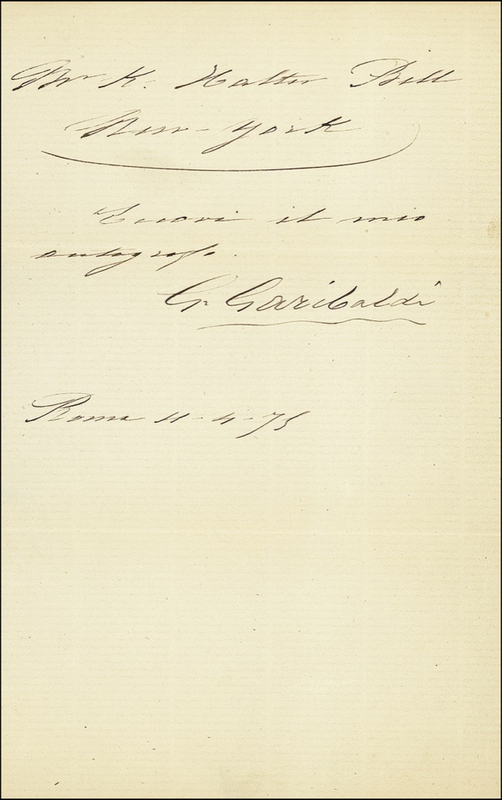 Mr K. Halter Bell
New-York
Eccovi il mio
autografo.
G. Garibaldi
Roma 11-4-75